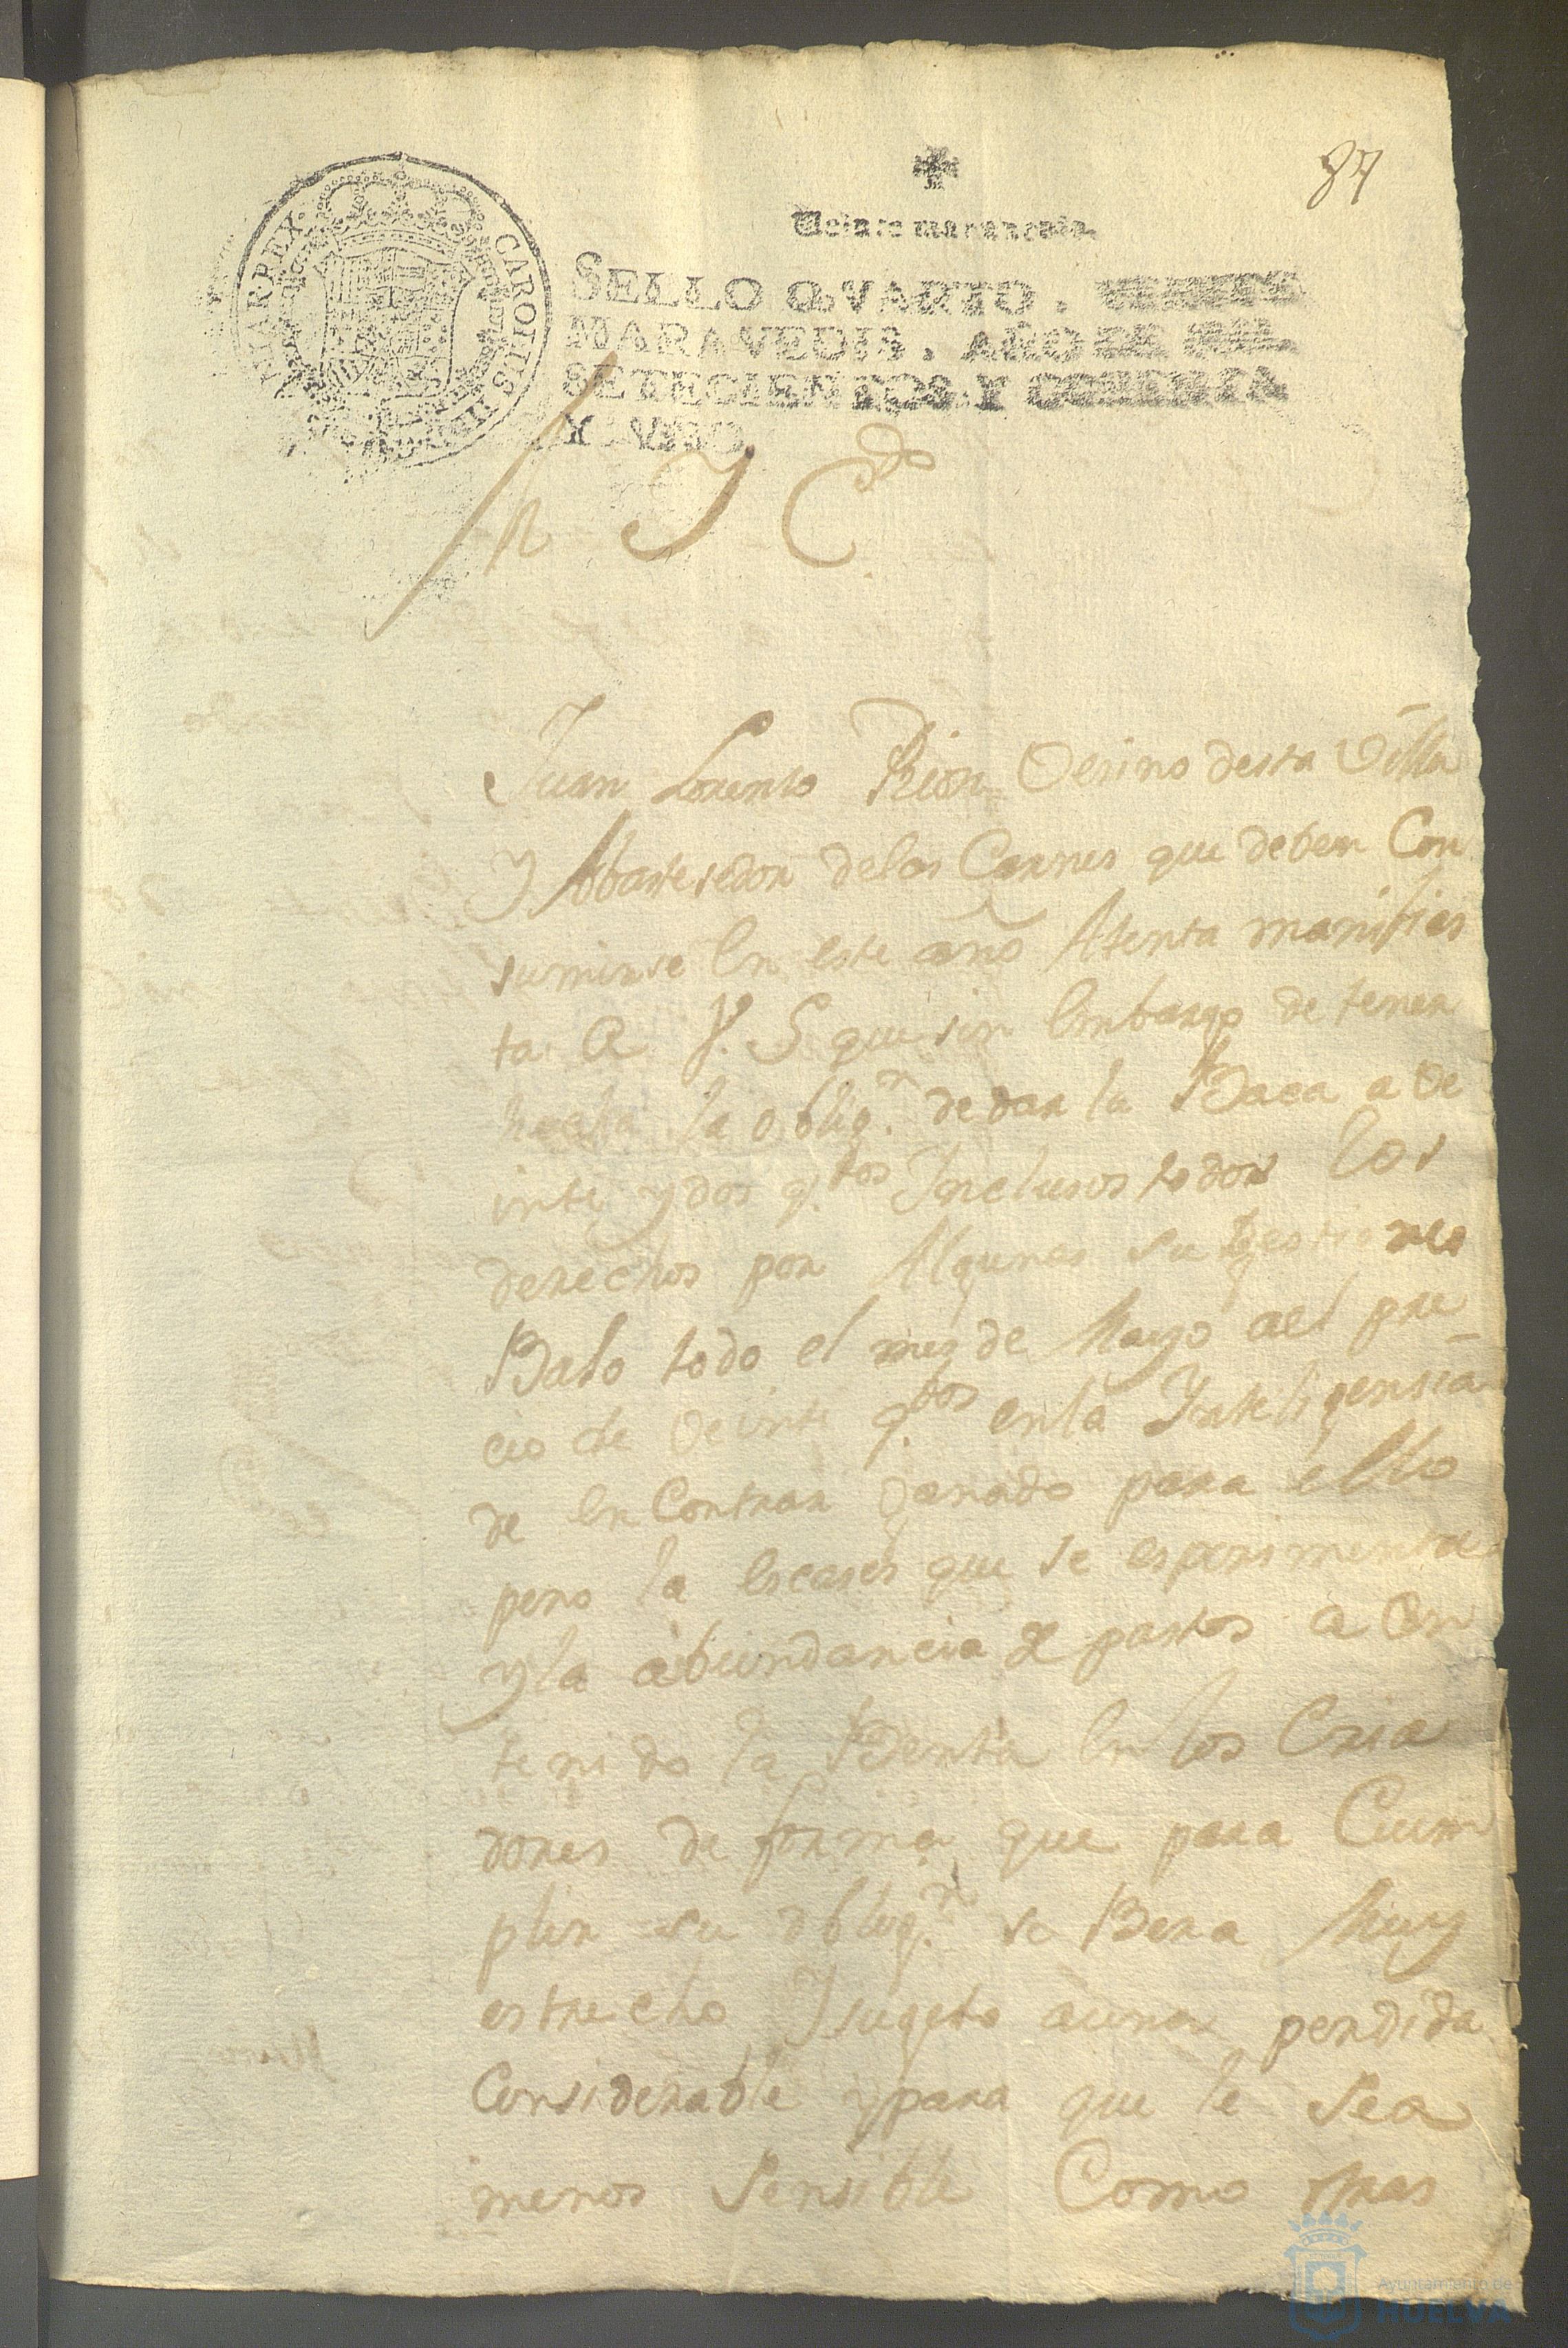 87
Veinte maravedis.
SELLO QVARTO, VEINTE
MARAVEDIS, AÑO DE MIL
SETECIENTOS Y OCHENTA
Y VNO.
CAROLUS III
HISPANIAR. REX.
Y C.do
Juan Lorenso Rion Vesino desta Villa
Y Abastesedor delas Carnes que deben Con
sumirse En este año Atenta manifies
ta A V. S que sin Embargo de tener
hecha la oblig.n de dar la Baca a Ve
inte y dos q.tos Inclusos todos los
derechos por Algunas sugestiones
Bajo todo el mes de Mayo ael pre
cio de Veinte q.tos en la Inteligensia
de Encontrar Ganado para ello
pero la Escases que se esperimenta
y la abundancia de pastos a Con
tenido la Benta En los Cria
dores de forma que para Cum
plir su oblig.n se Bera Muy
estrecho Y sugeto auna perdida
Considerable y para que le Sea
menos Sensible Como otras
Ayuntamiento de
HUELVA